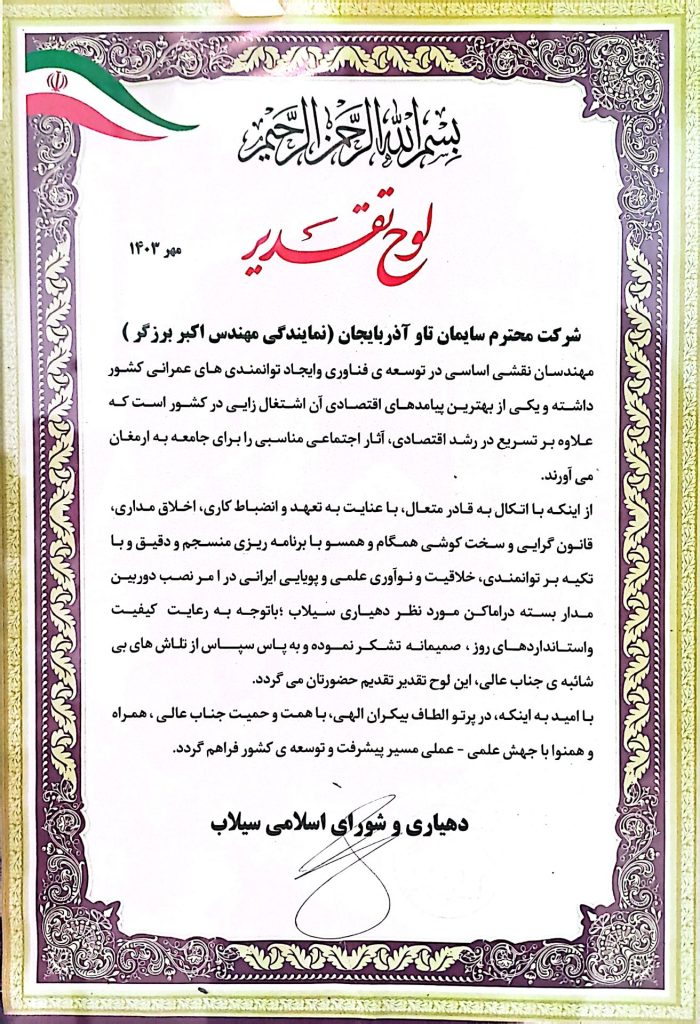 بسم الله الرحمن الرحیم
لوح تقدیر
مهر ۱۴۰۳
شرکت محترم سایمان تاو آذربایجان (نمایندگی مهندس اکبر برزگر )
مهندسان نقشی اساسی در توسعه ی فناوری وایجاد توانمندی های عمرانی کشور
داشته و یکی از بهترین پیامدهای اقتصادی آن اشتغال زایی در کشور است که
علاوه بر تسریع در رشد اقتصادی، آثار اجتماعی مناسبی را برای جامعه به ارمغان
می آورند.
از اینکه با اتکال به قادر متعال، با عنایت به تعهد و انضباط کاری، اخلاق مداری،
قانون گرایی و سخت کوشی همگام و همسو با برنامه ریزی منسجم و دقیق و با
تکیه بر توانمندی، خلاقیت و نوآوری علمی و پویایی ایرانی در ا مر نصب دوربین
مدار بسته دراماکن مورد نظر دهیاری سیلاب ؛باتوجه به رعایت کیفیت
واستانداردهای روز ، صمیمانه تشکر نموده و به پاس سپاس از تلاش های بی
شائبه ی جناب عالی، این لوح تقدیر تقدیم حضورتان می گردد.
با امید به اینکه، در پرتو الطاف بیکران الهی، با همت و حمیت جناب عالی ، همراه
و همنوا با جهش علمی - عملی مسیر پیشرفت و توسعه ی کشور فراهم گردد.
دهیاری و شورای اسلامی سیلاب